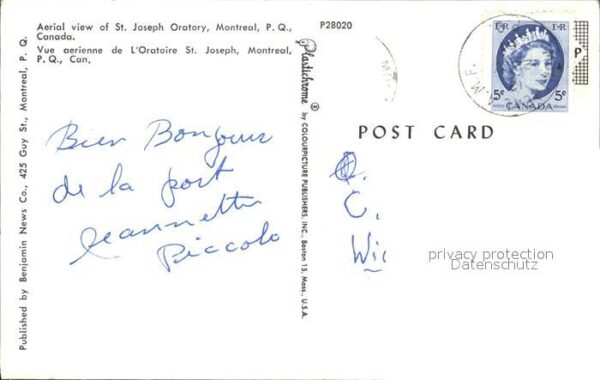 Aerial view of St. Joseph Oratory, Montreal, P. Q.,
Canada.
Vue aerienne de L'Oratoire St. Joseph, Montreal,
P. Q., Can.
P28020
Published by Benjamin News Co., 425 Guy St., Montreal, P. Q.
Plastichrome ® by COLOURPICTURE PUBLISHERS, INC., Boston 15, Mass., U.S.A.
POST CARD
Bien Bonjour
de la part
Jeannette
Piccolo
C.
Wi
E II R
E II R
5¢
5¢
CANADA
P
privacy protection
Datenschutz